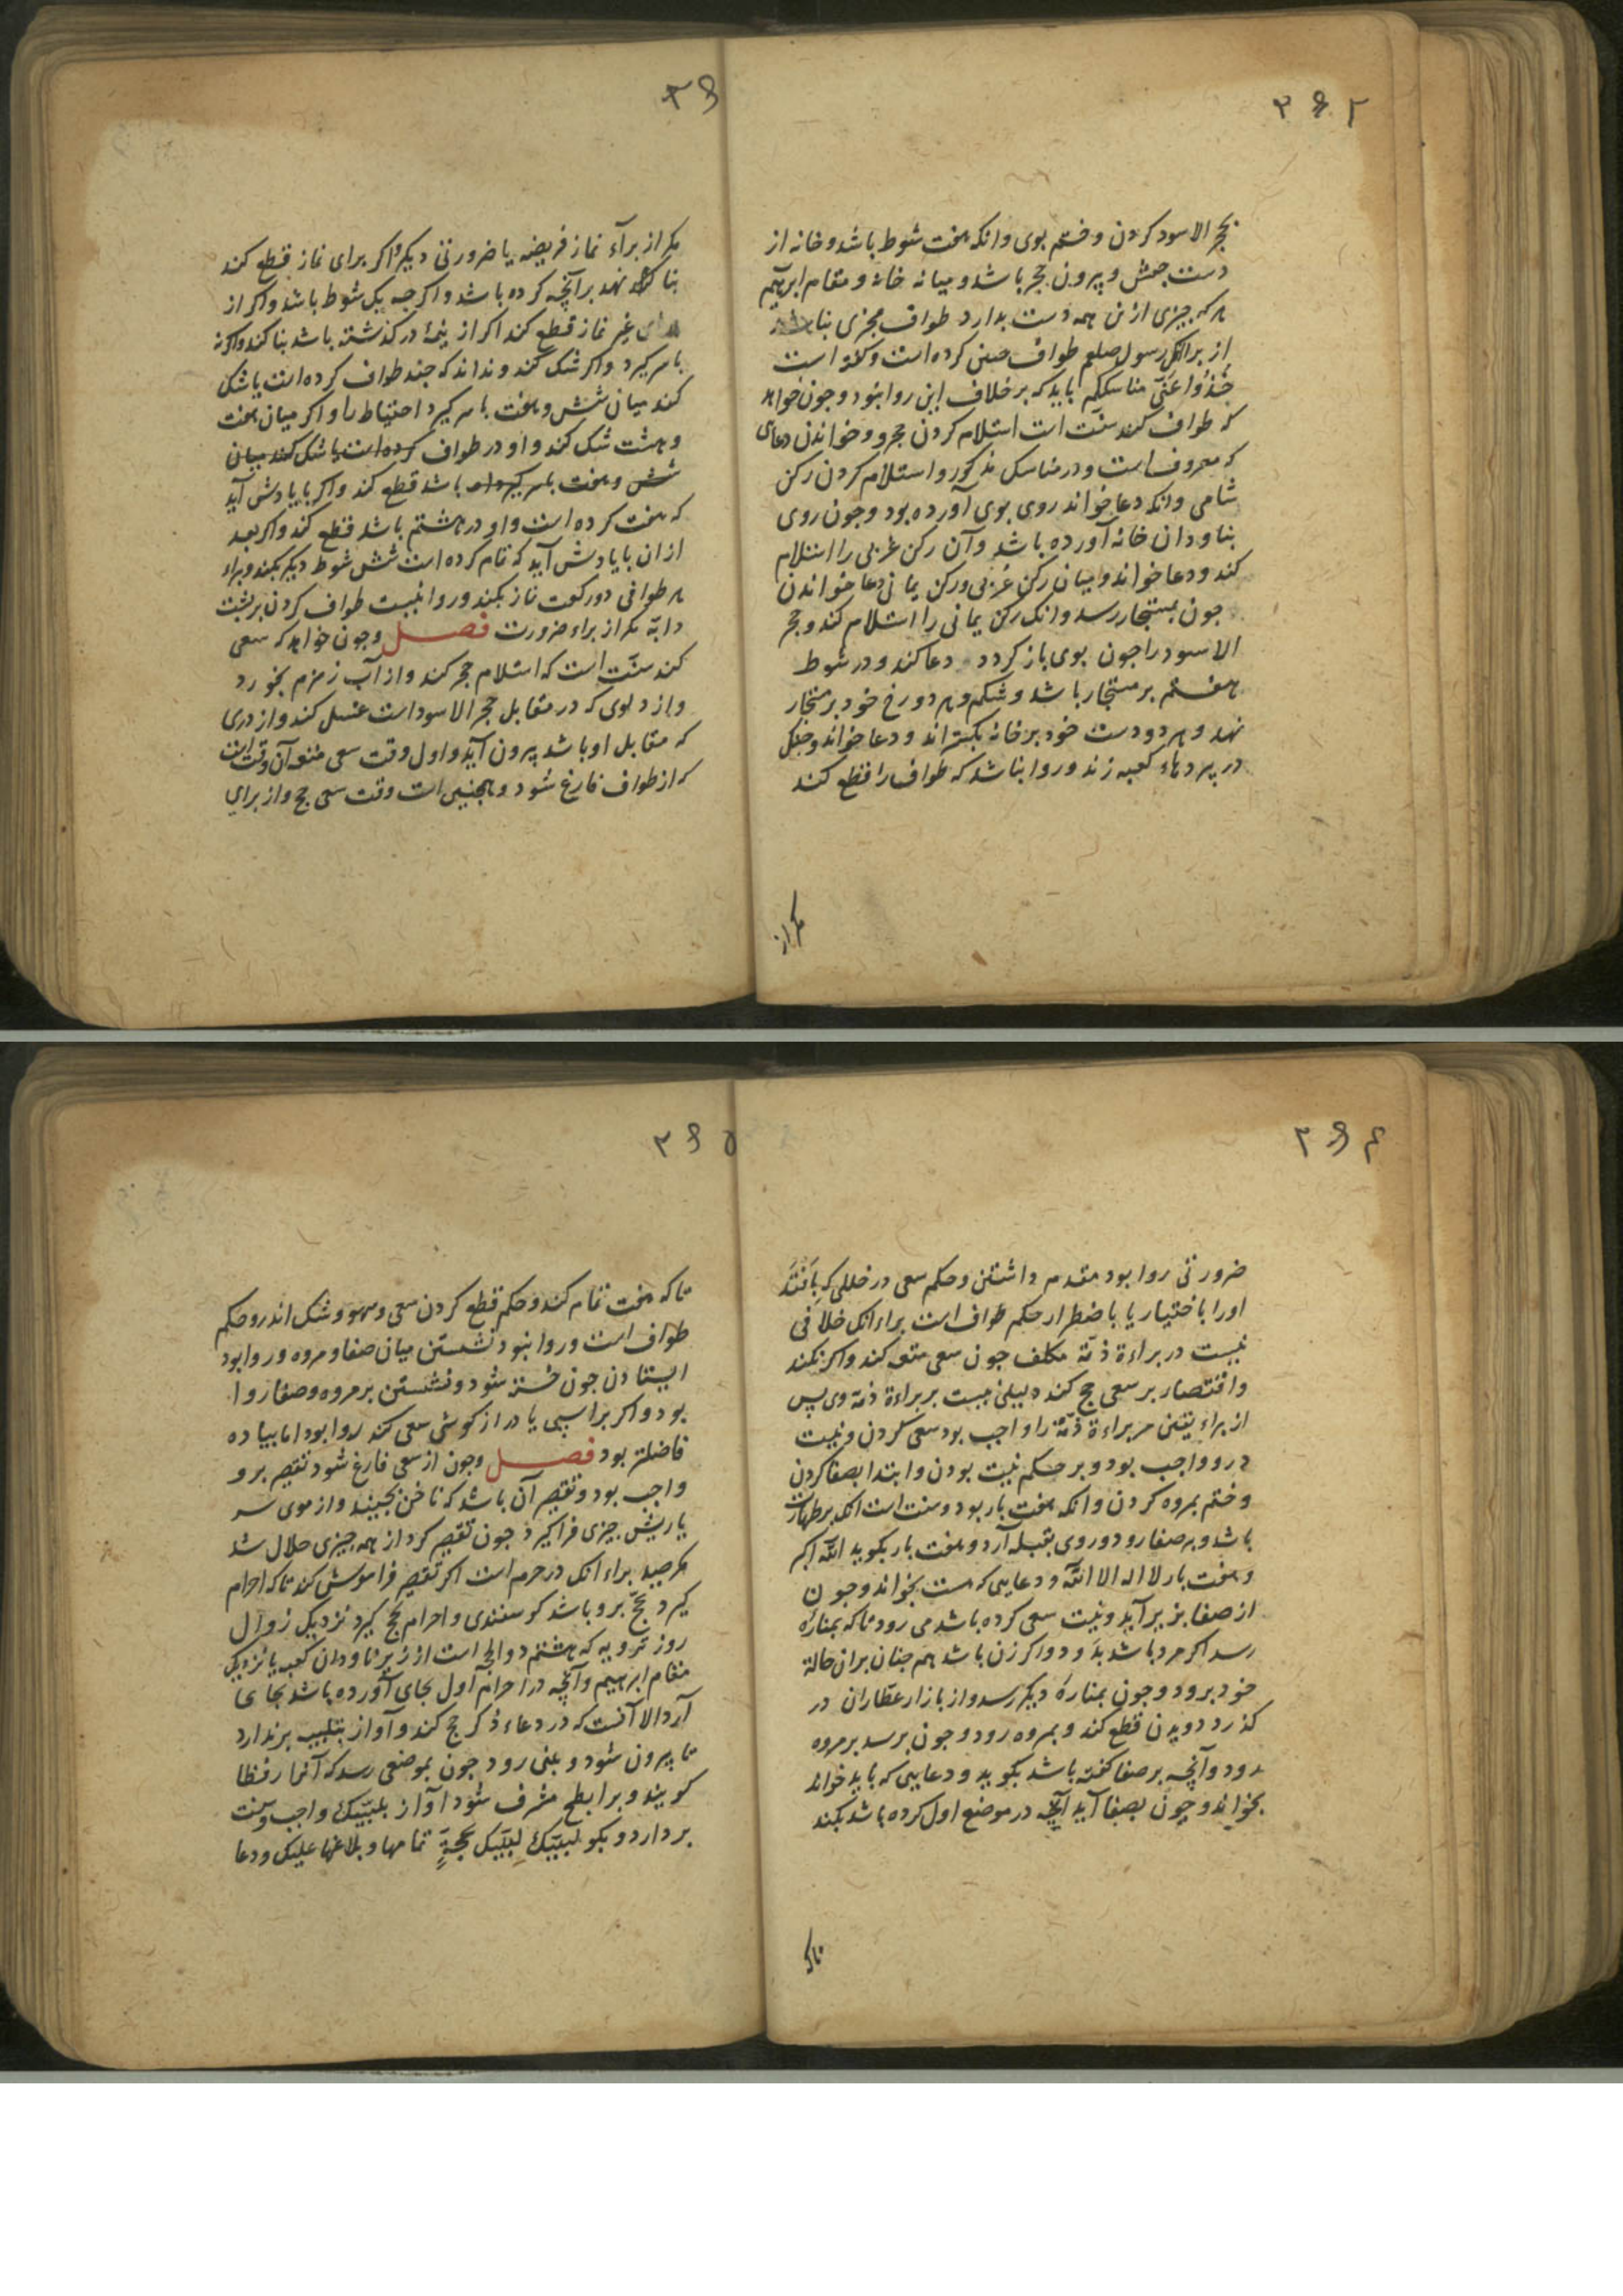 ۳۶۲
بحجر الاسود کردن و ختم بوی وانکه هفت شوط باشد و خانه از
دست چپش و بیرون حجر باشد و میانه خانه و مقام ابرهیم
هر که چیزی ازین همه دست بدارد طواف مجزی نباشد
از برا انکه رسول صلعم طواف چنین کرده است و گفته است
خُذُوا عَنّی مناسککم باید که بر خلاف این روا نبود و چون خواهد
که طواف کند سنّت است استلام کردن حجر و خواندن دعای
که معروفست و در مناسک مذکور و استلام کردن رکن
شامی وانکه دعا خواند روی بوی آورده بود و چون روی
بناودان خانه آورده باشد و آن رکن غربی را استلام
کند و دعا خواند و میان رکن غربی و رکن یمانی دعا خواندن
چون بمستجار رسد وانکه رکن یمانی را استلام کند و حجر
الاسود را چون بوی باز کردد دعا کند و در شوط
هفتم بر مستجار باشد و شکم و هر دو رخ خود بر مستجار
نهد و هر دو دست خود بر خانه بگستراند و دعا خواند و چنگ
در پردهاء کعبه زند و روا نباشد که طواف را قطع کند
مکر از
۳۶
مکر از برآء نماز فریضه یا ضرورتی دیکر و اکر برای نماز قطع کند
بنا نهد برآنچه کرده باشد و اکر چه یک شوط باشد و اکر از
برای غیر نماز قطع کند اکر از نیمهٔ درکذشته باشد بنا کند و اکر نه
با سر کیرد و اکر شک کند و نداند که چند طواف کرده است یا شک
کند میان شش و هفت با سر کیرد احتیاط را و اکر میان هفت
و هشت شک کند و او در طواف کرده است یا شک کند میان
شش و هفت با سر کیرد باشد قطع کند و اکر با یادش آید
که هفت کرده است و او در هشتم باشد قطع کند و اکر بعد
از ان با یادش آید که تمام کرده است شش شوط دیکر بکند و براء
هر طوافی دو رکعت نماز بکند و روا نیست طواف کردن بر پشت
دابّه مکر از براء ضرورت فصل و چون خواهد که سعی
کند سنّت است که استلام حجر کند و از آب زمزم بخورد
و از دلوی که در مقابل حجر الاسود است غسل کند و از دری
که مقابل او باشد بیرون آید و اول وقت سعی متعه آن وقت است
که از طواف فارغ شود و همچنین است وقت سعی حج و از برای
۳۶۴
ضرورتی روا بود مقدم داشتن و حکم سعی در خللی که بافتد
او را باختیار یا باضطرار حکم طواف است براء انکه خلافی
نیست در براءة ذمّة مکلف چون سعی متعه کند و اکر نکند
و اقتصار بر سعی حج کند دلیلی نیست بر براءة ذمه وی پس
از براء یقین مر براءة ذمّة را واجب بود سعی کردن و نیت
درو واجب بود و بر حکم نیت بودن و ابتدا بصفا کردن
و ختم بمروه کردن وانکه هفت بار بود و سنت است انکه بر طهارت
باشد و بر صفا رود و روی بقبله آرد و هفت بار بکوید الله اکبر
و هفت بار لا اله الا الله و دعایی که هست بخواند و چون
از صفا بزیر آید و نیت سعی کرده باشد می رود تا که بمنارهٔ
رسد اکر مرد باشد بدَود و اکر زن باشد هم چنان بران حالة
خود برود و چون بمنارهٔ دیکر رسد و از بازار عطّاران در
کذرد دویدن قطع کند و بمروه رود و چون برسد بر مروه
رود و آنچه بر صفا کفته باشد بکوید و دعایی که باید خواند
بخواند و چون بصفا آید آنچه در موضع اول کرده باشد بکند
تاکه
۳۶۵
تا که هفت تمام کند و حکم قطع کردن سعی و سهو و شک اندرو حکم
طواف است و روا نبود نشستن میان صفا و مروه و روا بود
ایستادن چون خسته شود و نشستن بر مروه و صفا روا
بود و اکر بر اسپی یا دراز کوشی سعی کند روا بود اما پیاده
فاضلتر بود فصل و چون از سعی فارغ شود تقصیر برو
واجب بود و تقصیر آن باشد که ناخن بچیند و از موی سر
یا ریش چیزی فراکیرد چون تقصیر کرد از همه چیزی حلال شد
مکر صید براء انکه در حرم است اکر تقصیر فراموش کند تا که احرام
کیرد بحج برو باشد کوسفندی و احرام بحج کیرد نزدیک زوال
روز ترویه که هشتم ذوالحجه است از زیر ناودان کعبه یا نزدیک
مقام ابرهیم و آنچه در احرام اول بجای آورده باشد بجای
آرد الا آنست که در دعاء ذکر حج کند و آواز بتلبیه برندارد
تا بیرون شود و بمنی رود چون بموضعی رسد که آنرا رقطا
کویند و بر ابطح مشرف شود آواز بلبّیک واجب و سنت
بردارد و بکو لبّیکَ لبّیک بحجّةٍ تمامها و بلاغها علیک و دعا